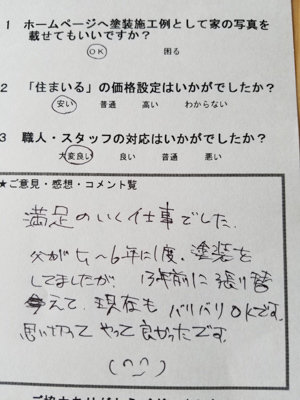 1 ホームページへ塗装施工例として家の写真を
載せてもいいですか？
OK 困る
2 「住まいる」の価格設定はいかがでしたか？
安い 普通 高い わからない
3 職人・スタッフの対応はいかがでしたか？
大変良い 良い 普通 悪い
★ご意見・感想・コメント覧
満足のいく仕事でした。
父が 5〜6年に1度、塗装を
してましたが 13年前に張り替
えて、現在も バリバリOKです。
思い切って やって良かったです。